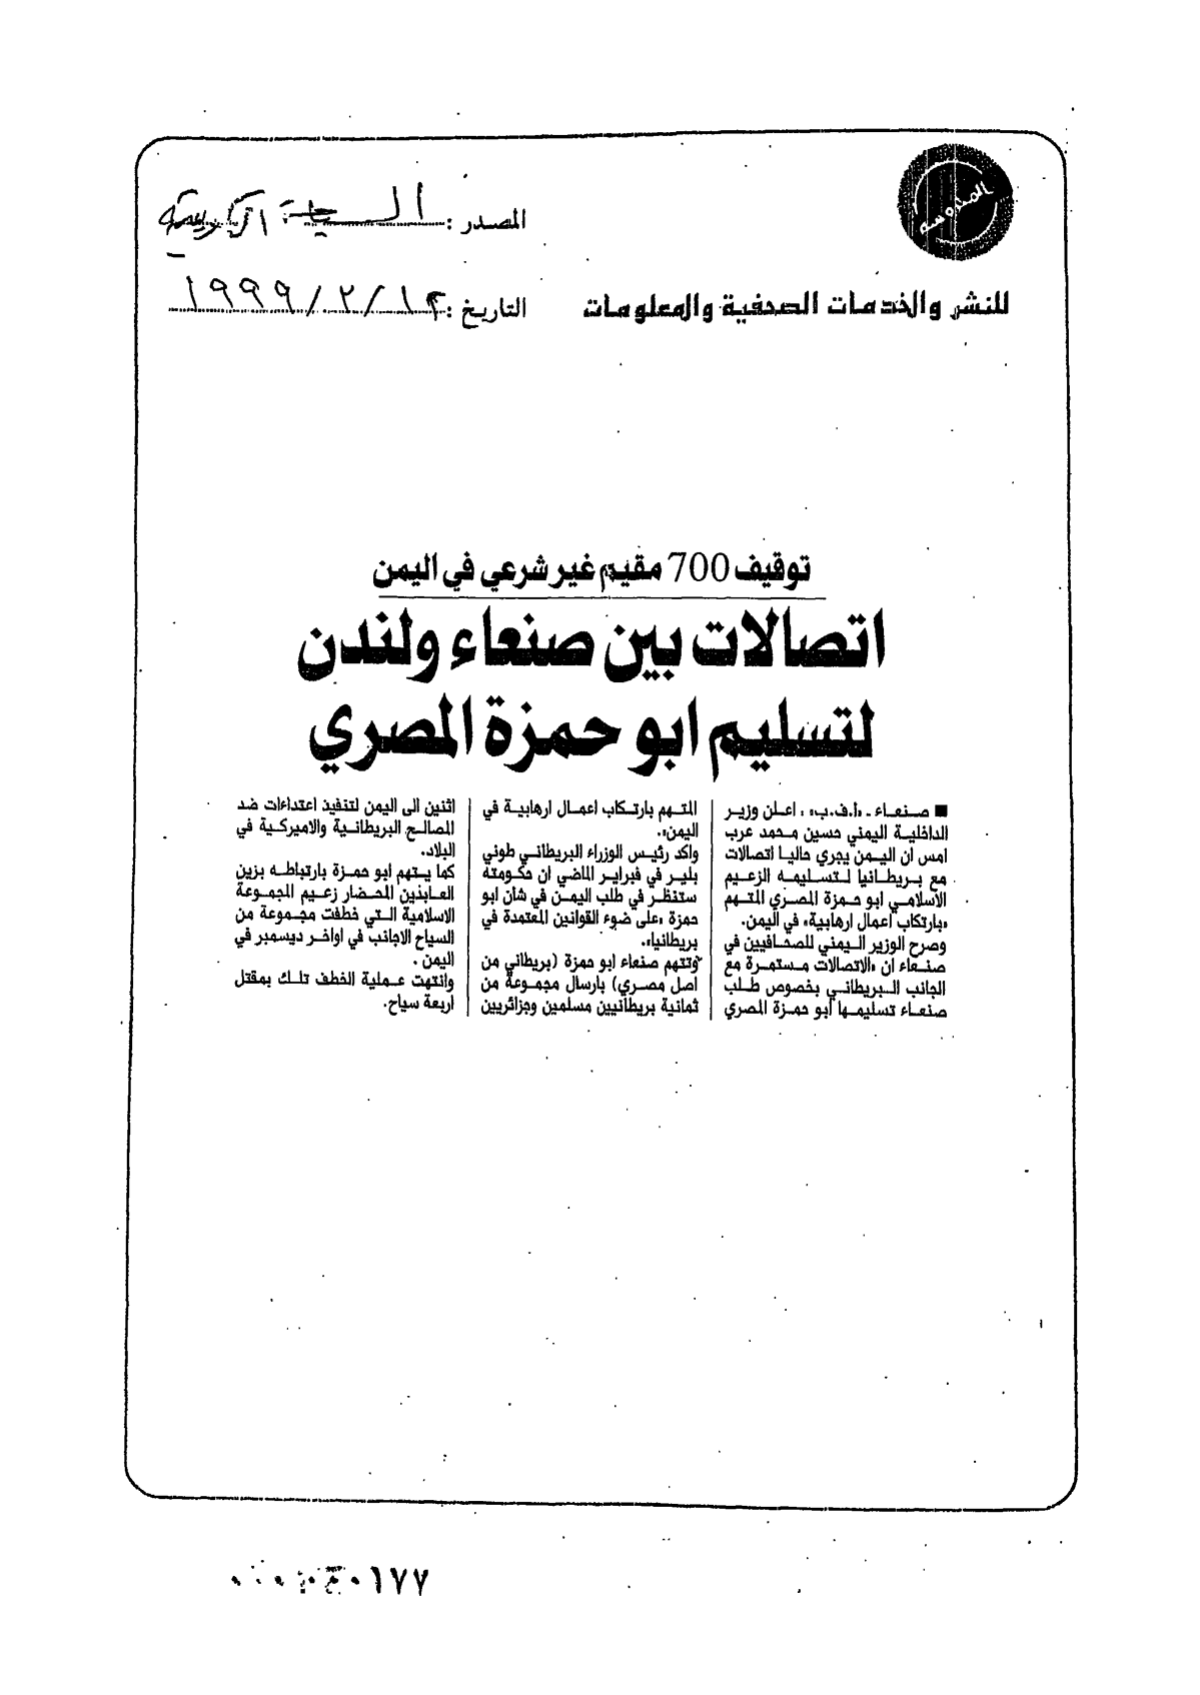 المدروسة
المصدر : السياسة الكويتية
للنشر والخدمات الصحفية والمعلومات
التاريخ : ١٢/٢/١٩٩٩
توقيف 700 مقيم غير شرعي في اليمن
اتصالات بين صنعاء ولندن
لتسليم ابو حمزة المصري
■ صنعاء ـ «أ.ف.ب»، اعلن وزير
الداخلية اليمني حسين محمد عرب
امس ان اليمن يجري حاليا اتصالات
مع بريطانيا لتسليمه الزعيم
الاسلامي ابو حمزة المصري المتهم
«بارتكاب أعمال ارهابية» في اليمن.
وصرح الوزير اليمني للصحافيين في
صنعاء ان «الاتصالات مستمرة مع
الجانب البريطاني بخصوص طلب
صنعاء تسليمها أبو حمزة المصري
المتهم بارتكاب اعمال ارهابية في
اليمن».
واكد رئيس الوزراء البريطاني طوني
بلير في فبراير الماضي ان حكومته
ستنظر في طلب اليمن في شان ابو
حمزة «على ضوء القوانين المعتمدة في
بريطانيا».
وتتهم صنعاء ابو حمزة (بريطاني من
اصل مصري) بارسال مجموعة من
ثمانية بريطانيين مسلمين وجزائريين
اثنين الى اليمن لتنفيذ اعتداءات ضد
المصالح البريطانية والاميركية في
البلاد.
كما يتهم ابو حمزة بارتباطه بزين
العابدين المحضار زعيم المجموعة
الاسلامية التي خطفت مجموعة من
السياح الاجانب في اواخر ديسمبر في
اليمن .
وانتهت عملية الخطف تلك بمقتل
اربعة سياح.
٠١٧٧